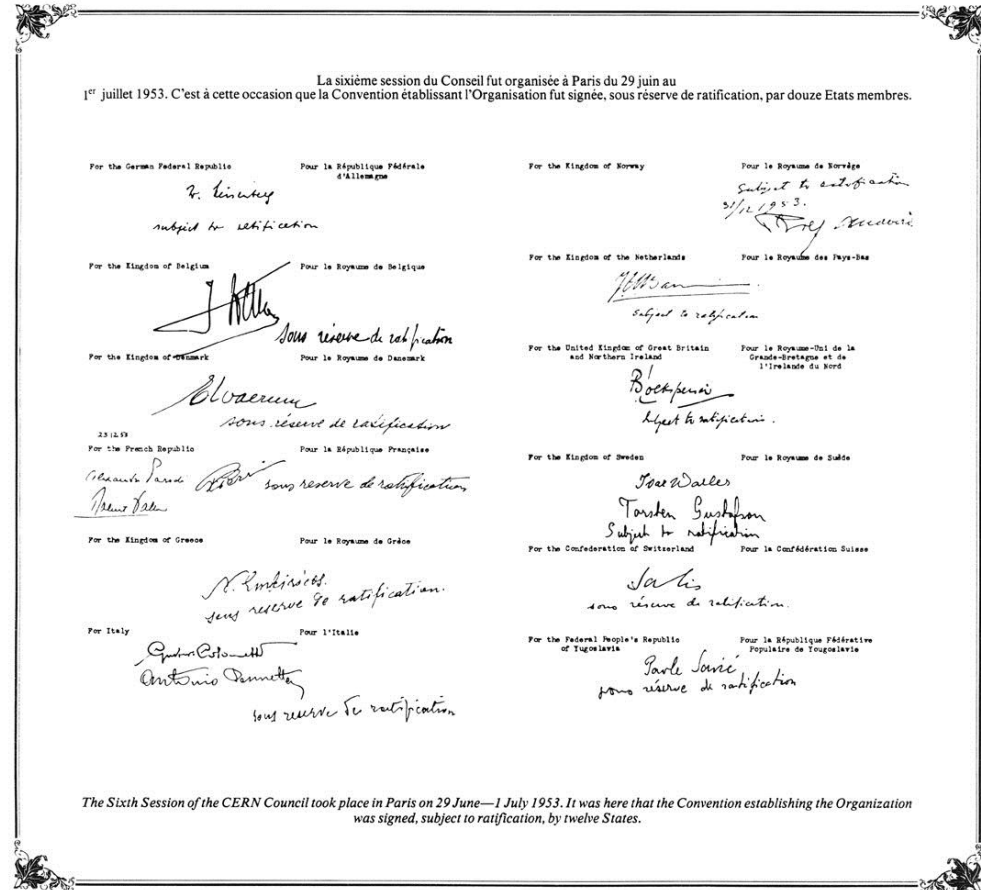 La sixième session du Conseil fut organisée à Paris du 29 juin au
1er juillet 1953. C'est à cette occasion que la Convention établissant l'Organisation fut signée, sous réserve de ratification, par douze Etats membres.
For the German Federal Republic
Pour la République Fédérale
d'Allemagne
subject to ratification
For the Kingdom of Belgium
Pour le Royaume de Belgique
sous réserve de ratification
For the Kingdom of Denmark
Pour le Royaume de Danemark
sous réserve de ratification
23 12 53
For the French Republic
Pour la République Française
Alexandre Parodi
sous reserve de ratification
For the Kingdom of Greece
Pour le Royaume de Grèce
sous reserve de ratification.
For Italy
Pour l'Italie
Antonio Pennetta
sous reserve de ratification
For the Kingdom of Norway
Pour le Royaume de Norvège
Subject to ratification
31/12 1953.
For the Kingdom of the Netherlands
Pour le Royaume des Pays-Bas
subject to ratification
For the United Kingdom of Great Britain
and Northern Ireland
Pour le Royaume-Uni de la
Grande-Bretagne et de
l'Irelande du Nord
subject to ratification.
For the Kingdom of Sweden
Pour le Royaume de Suède
Ivar Waller
Torsten Gustafson
Subject to ratification
For the Confederation of Switzerland
Pour la Confédération Suisse
sous réserve de ratification.
For the Federal People's Republic
of Yugoslavia
Pour la République Fédérative
Populaire de Yougoslavie
Pavle Savić
sous réserve de ratification
The Sixth Session of the CERN Council took place in Paris on 29 June—1 July 1953. It was here that the Convention establishing the Organization
was signed, subject to ratification, by twelve States.